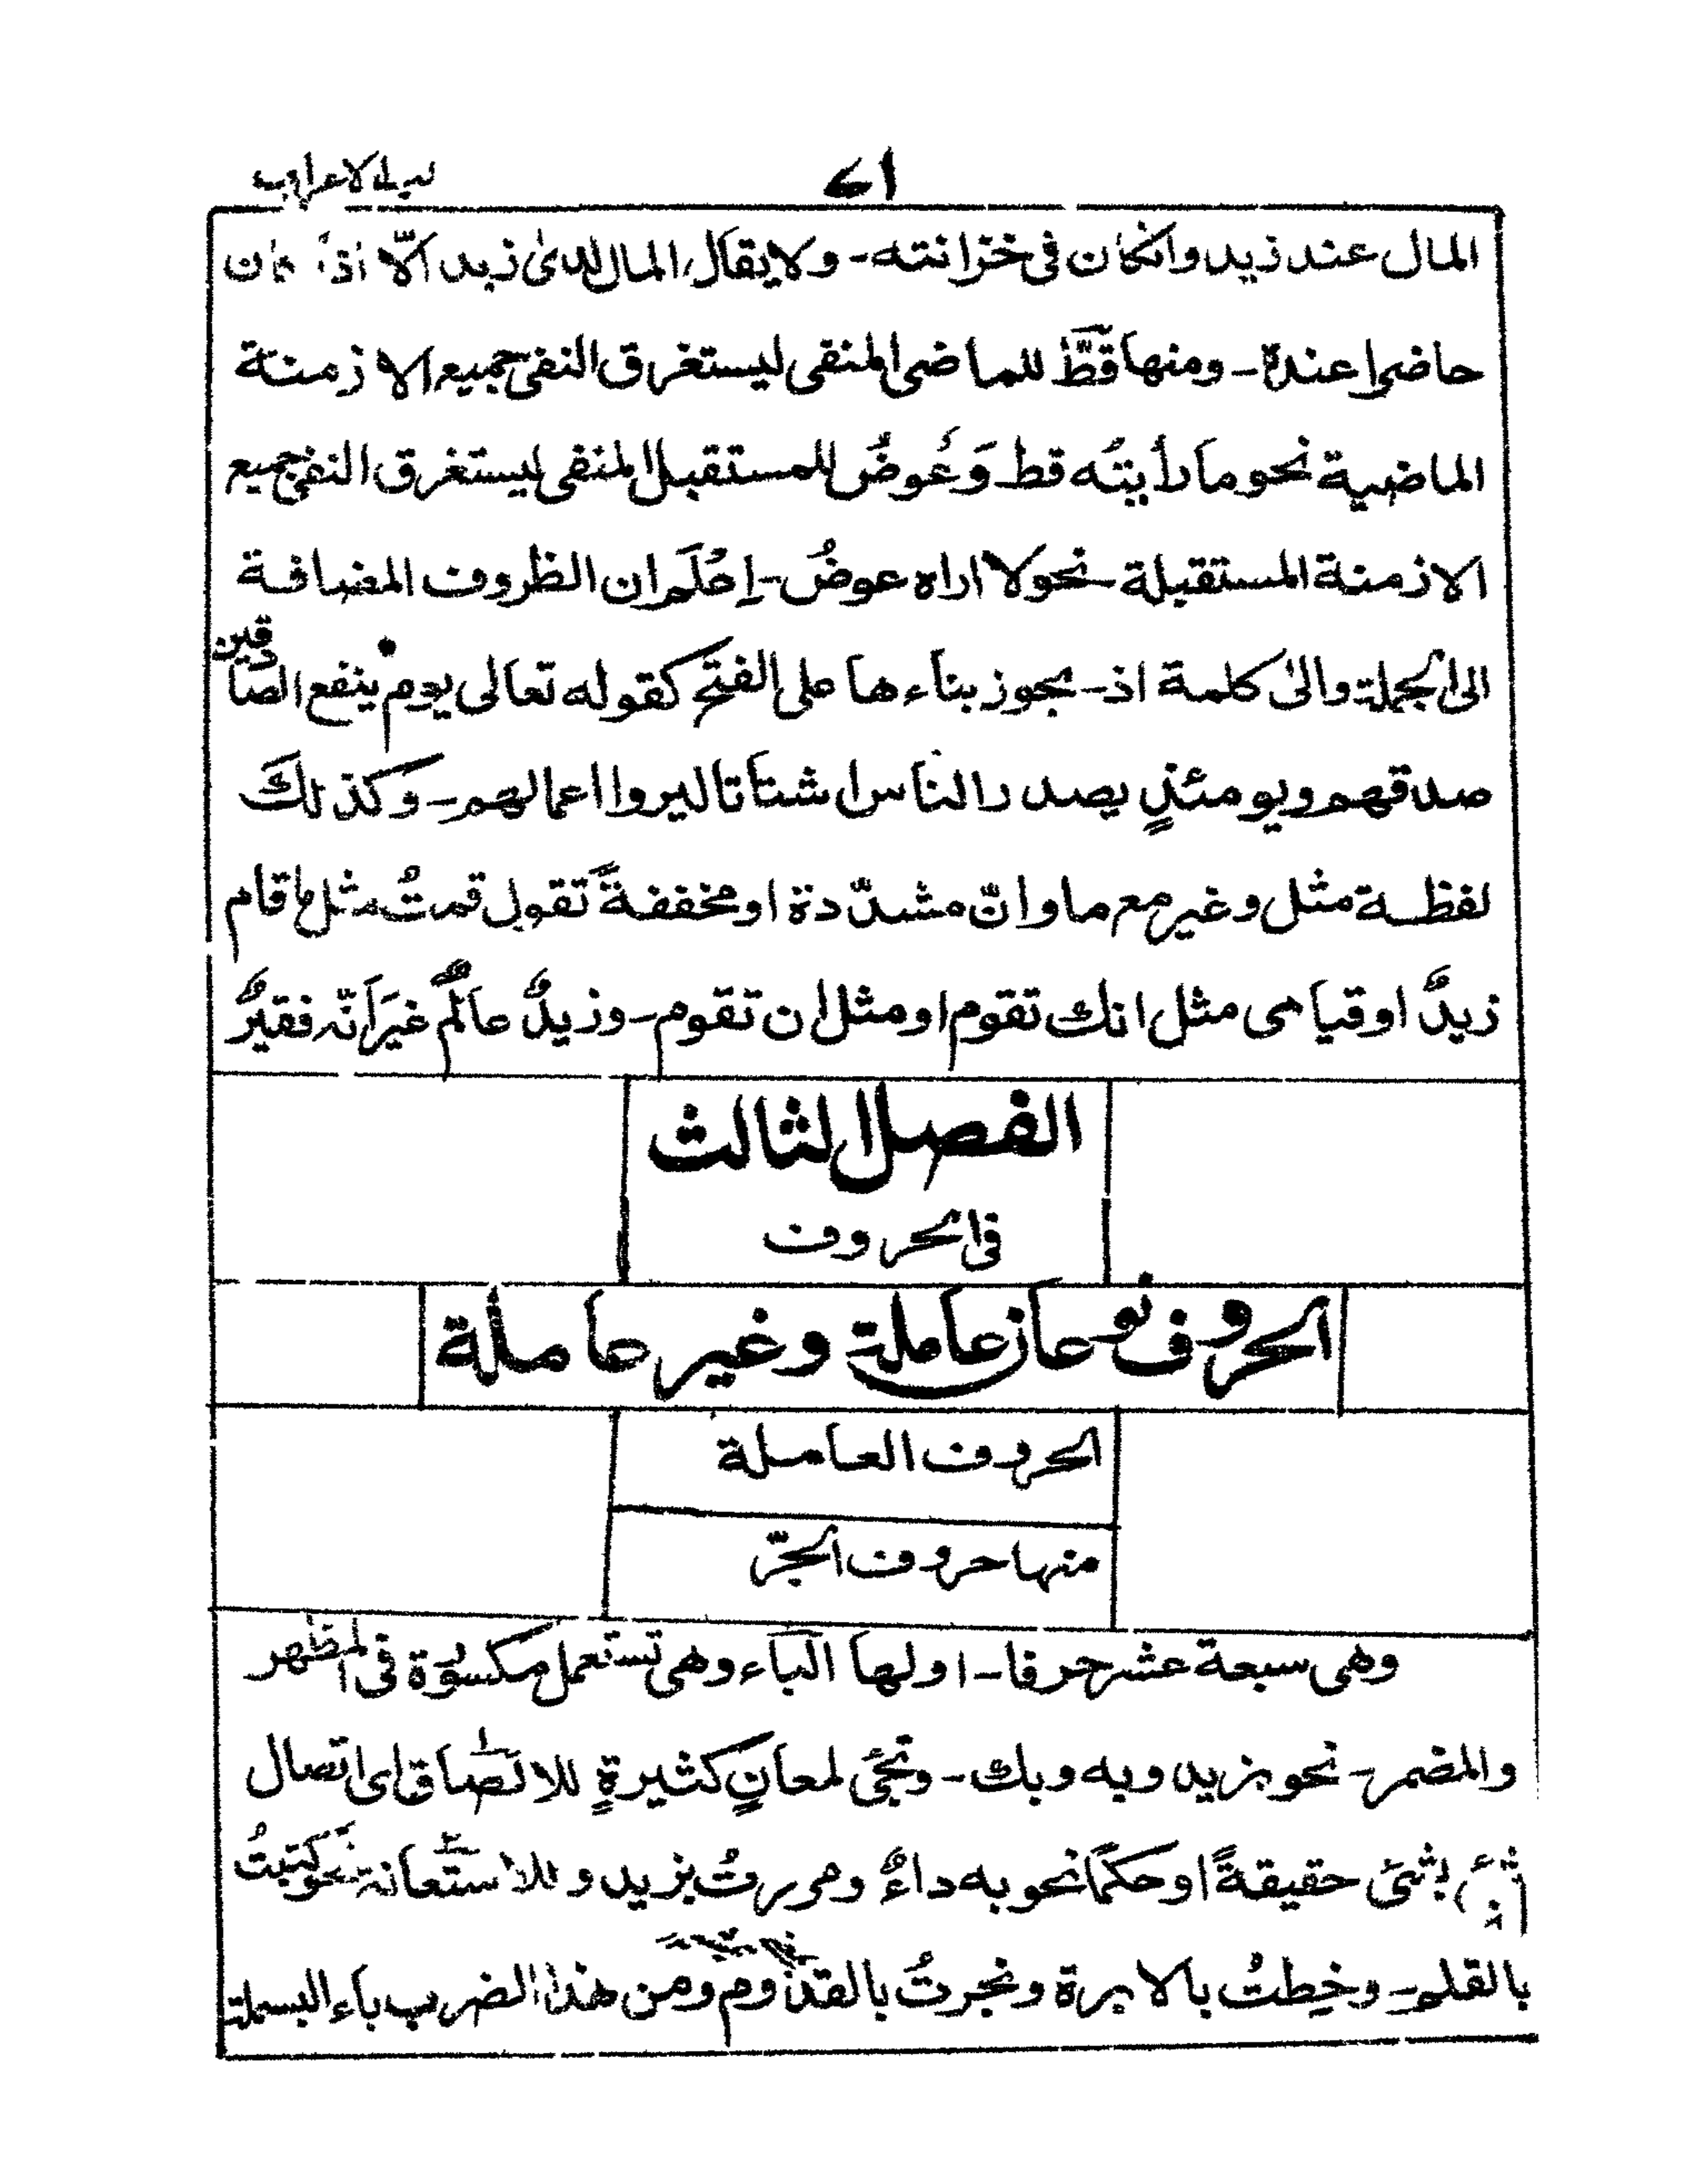 ٧١
المال عند زيد وانكان فى خزانته ـ ولا يقال المال لدىٰ زيد الّا اذا كان
حاضرا عندہ ـ ومنها قطُّ للماضى المنفى ليستغرق النفى جميع الازمنة
الماضية نحو ما رأيتُه قط وَعَوضُ للمستقبل المنفى ليستغرق النفى جميع
الازمنة المستقبلة ـ نحو لا اراه عوضُ ـ اِعْلَم ان الظروف المضافة
الى الجملة والىٰ كلمة اذ ـ يجوز بناءها على الفتح كقوله تعالى يوم ينفع الصادقين
صدقهم ويومئذٍ يصدر الناس اشتاتا ليروا اعمالهم ـ وَكذلكَ
لفظة مثل وغير مع ما وانّ مشدّدة او مخففةً تقول قمتُ مثل ما قام
زيدٌ او قيامى مثل انك تقوم او مثل ان تقوم ـ وزيدٌ عالمٌ غيرَ انّه فقيرٌ
الفصل الثالث
فى الحروف
الحروف نوعان عاملة وغير عاملة
الحروف العاملة
منها حروف الجرّ
وهى سبعة عشر حرفا ـ اولها الباء وهى تستعمل مكسورة فى المظهر
والمضمر ـ نحو بزيد وبه وبك ـ وتجئ لمعانٍ كثيرةٍ للالصاق اى اتصال
شئ بشئ حقيقةً او حكمًا نحو به داءٌ ومررتُ بزيد وللاستعانة نحو كتبتُ
بالقلم ـ وخِطتُ بالابرة ونجرتُ بالقدّوم ومن هٰذا الضرب باء البسملة